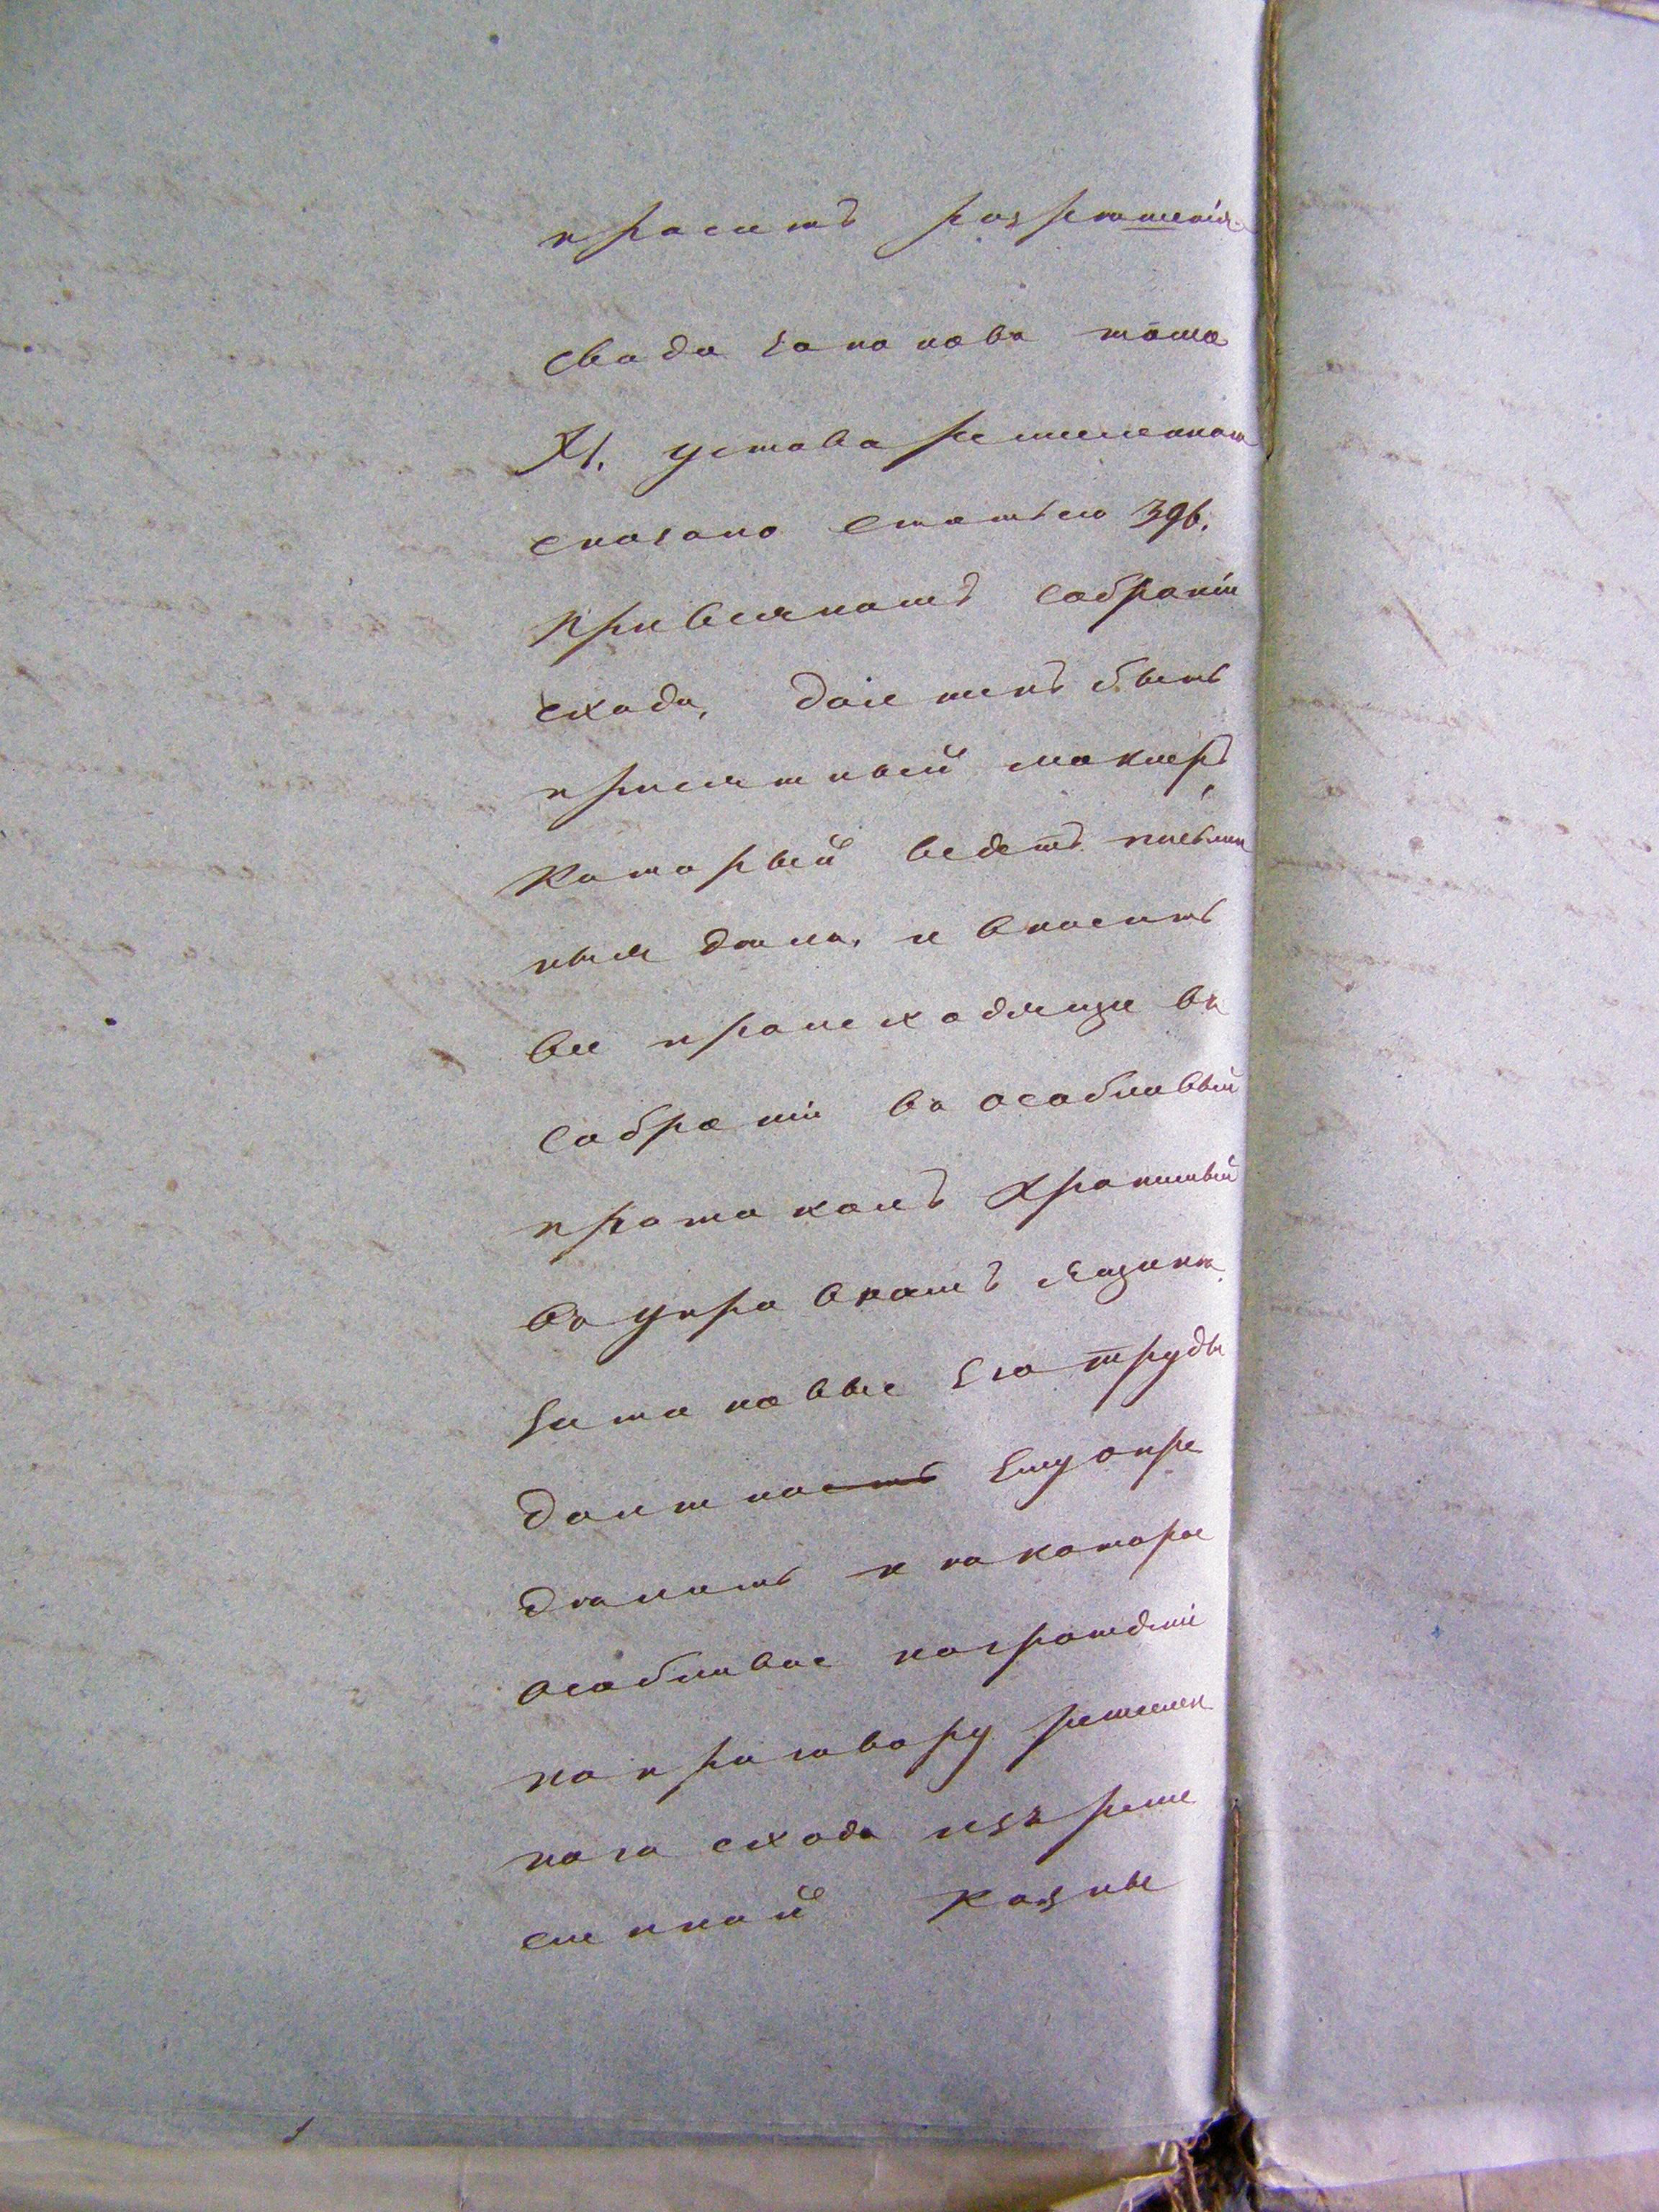 проситъ разрѣшенія
свода законовъ тома
XI. устава ремесленнаго
сказано статьею 396.
при всякомъ собраніи
схода, долженъ быть
присяжный маклеръ,
который ведетъ письмен
ныя дѣла, и вноситъ
всѣ происходящія въ
собраніи въ особливый
протоколъ хранимый
въ управномъ ящикѣ
Затаковые Его труды
должно Ему опре
дѣлить и некоторое
особливое награжденіе
по приговору ремеслен
наго схода изъ реме
сленной казны